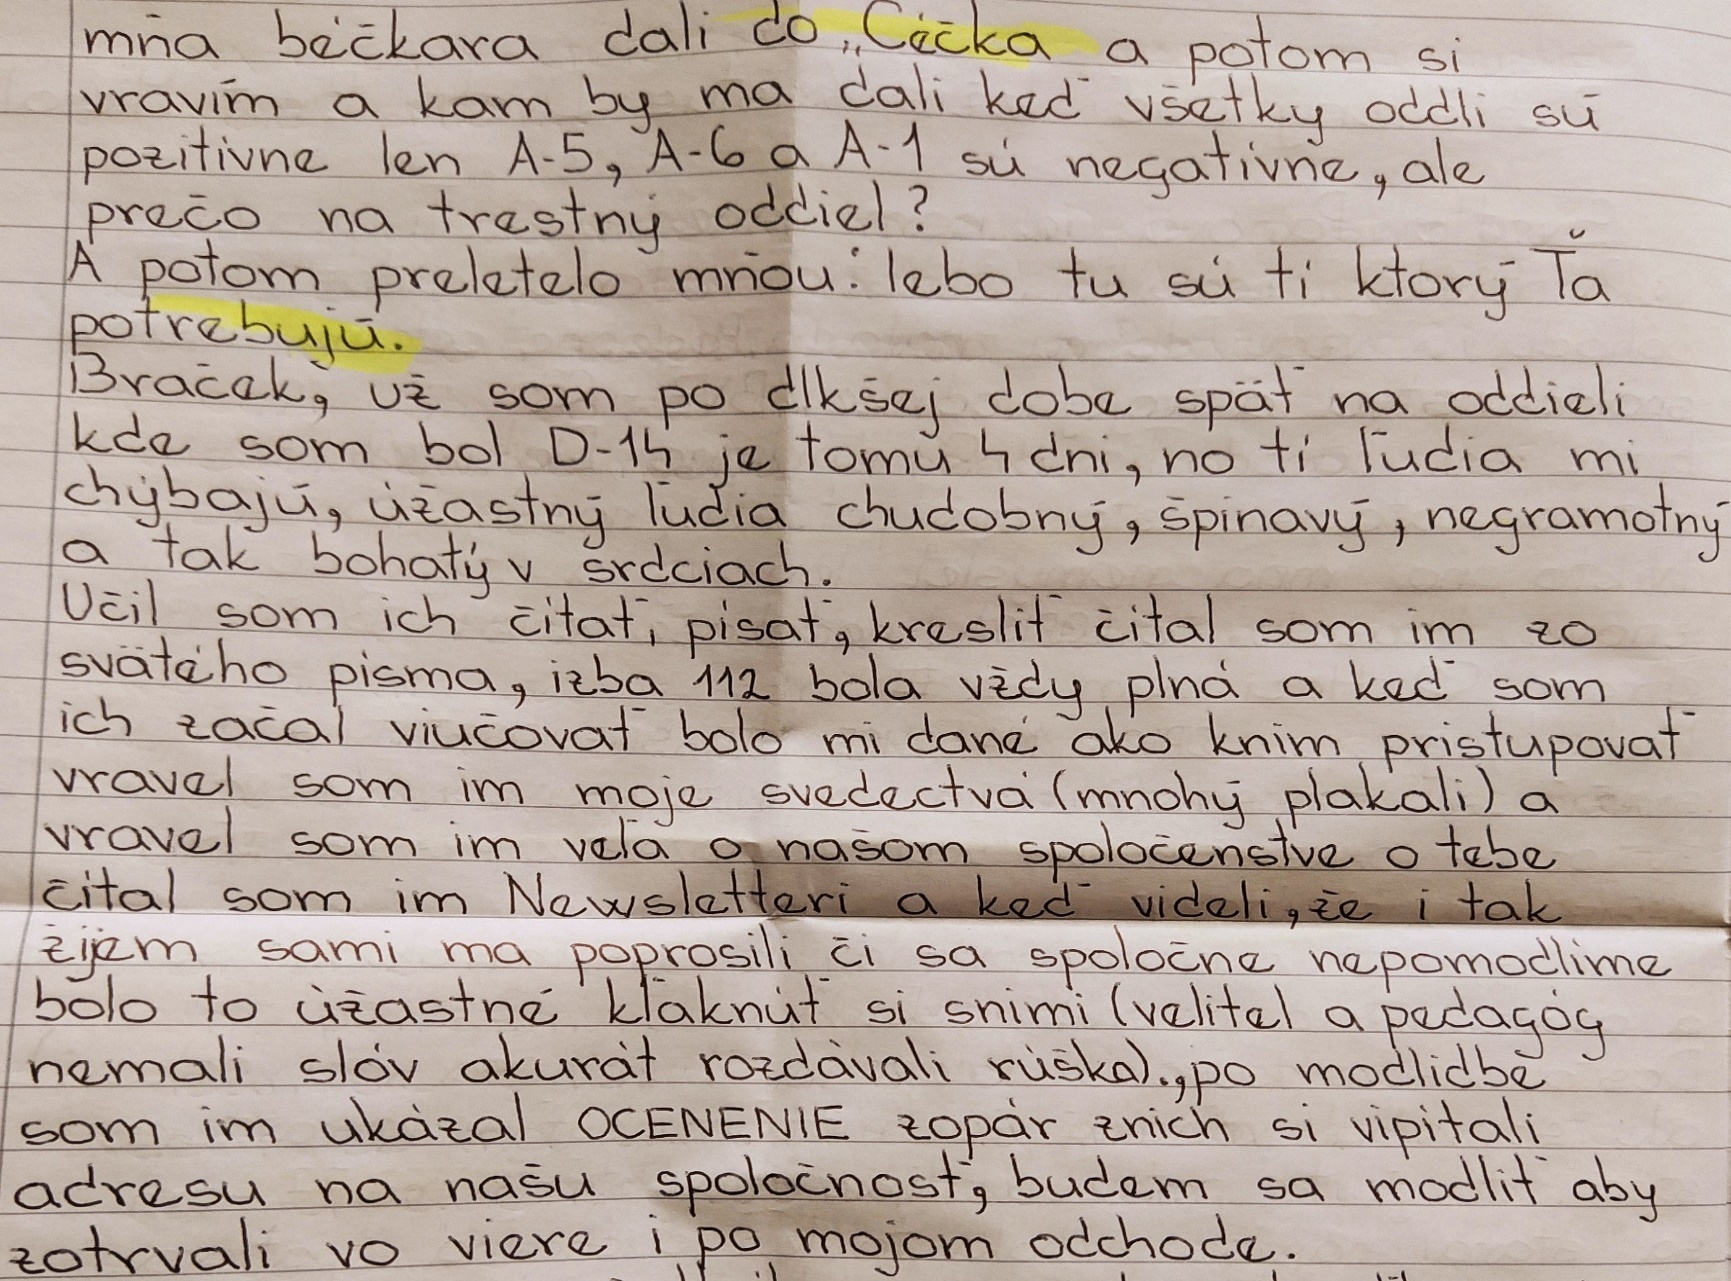 mňa béčkara dali do „Céčka a potom si
vravím a kam by ma dali keď všetky oddli sú
pozitivne len A-5, A-6 a A-1 sú negativne, ale
prečo na trestný oddiel?
A potom preletelo mňou: lebo tu sú tí ktorý Ťa
potrebujú.
Braček, už som po dlkšej dobe späť na oddieli
kde som bol D-14 je tomu 4 dni, no tí ľudia mi
chýbajú, úžastný ľudia chudobný, špinavý, negramotný
a tak bohatý v srdciach.
Učil som ich čítať, písať, kresliť čítal som im zo
svätého pisma, izba 112 bola vždy plná a keď som
ich začal viučovať bolo mi dané ako knim pristupovať
vravel som im moje svedectvá (mnohý plakali) a
vravel som im veľa o našom spoločenstve o tebe
čítal som im Newsletteri a keď videli, že i tak
žijem sami ma poprosili či sa spoločne nepomodlime
bolo to úžastné kľaknúť si snimi (velitel a pedagóg
nemali slóv akurát rozdávali rúška)., po modlidbe
som im ukázal OCENENIE zopár znich si vipitali
adresu na našu spoločnosť, budem sa modliť aby
zotrvali vo viere i po mojom odchode.